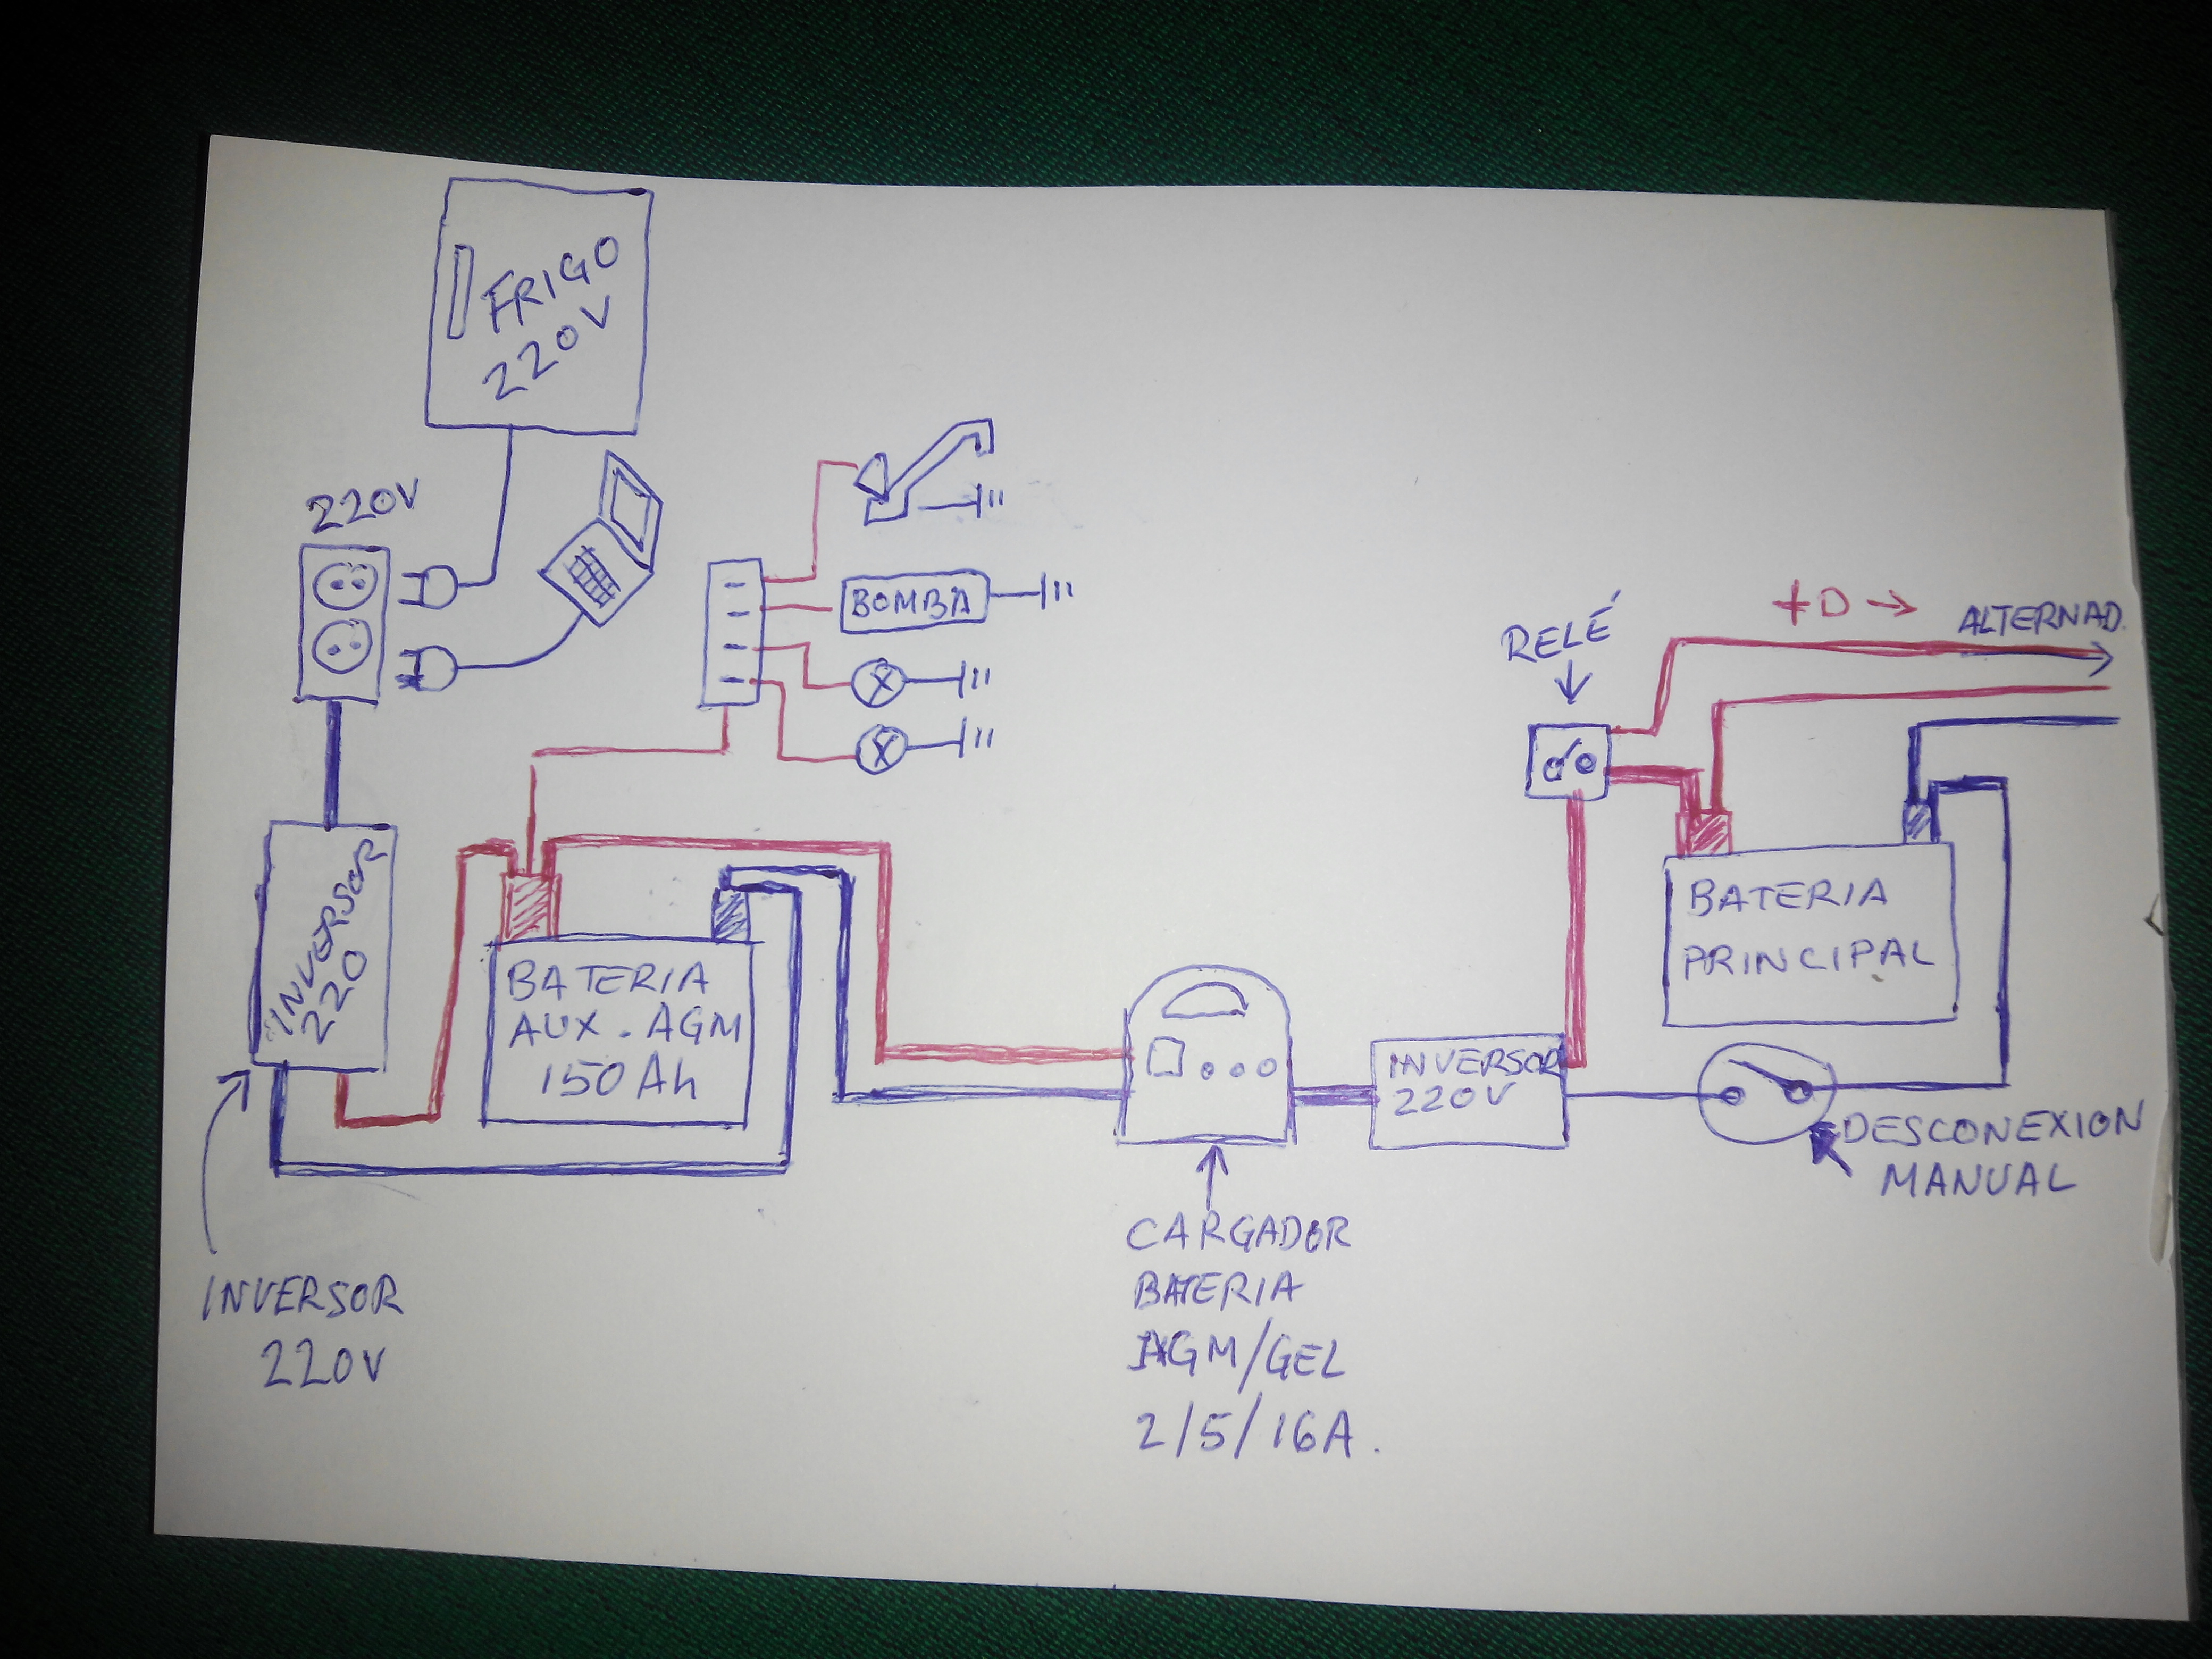 FRIGO
220V
220V
BOMBA
RELÉ
+D →
ALTERNAD.
INVERSOR
220
BATERIA
AUX. AGM
150 Ah
BATERIA
PRINCIPAL
INVERSOR
220V
DESCONEXION
MANUAL
CARGADOR
BATERIA
AGM/GEL
2/5/16A.
INVERSOR
220V